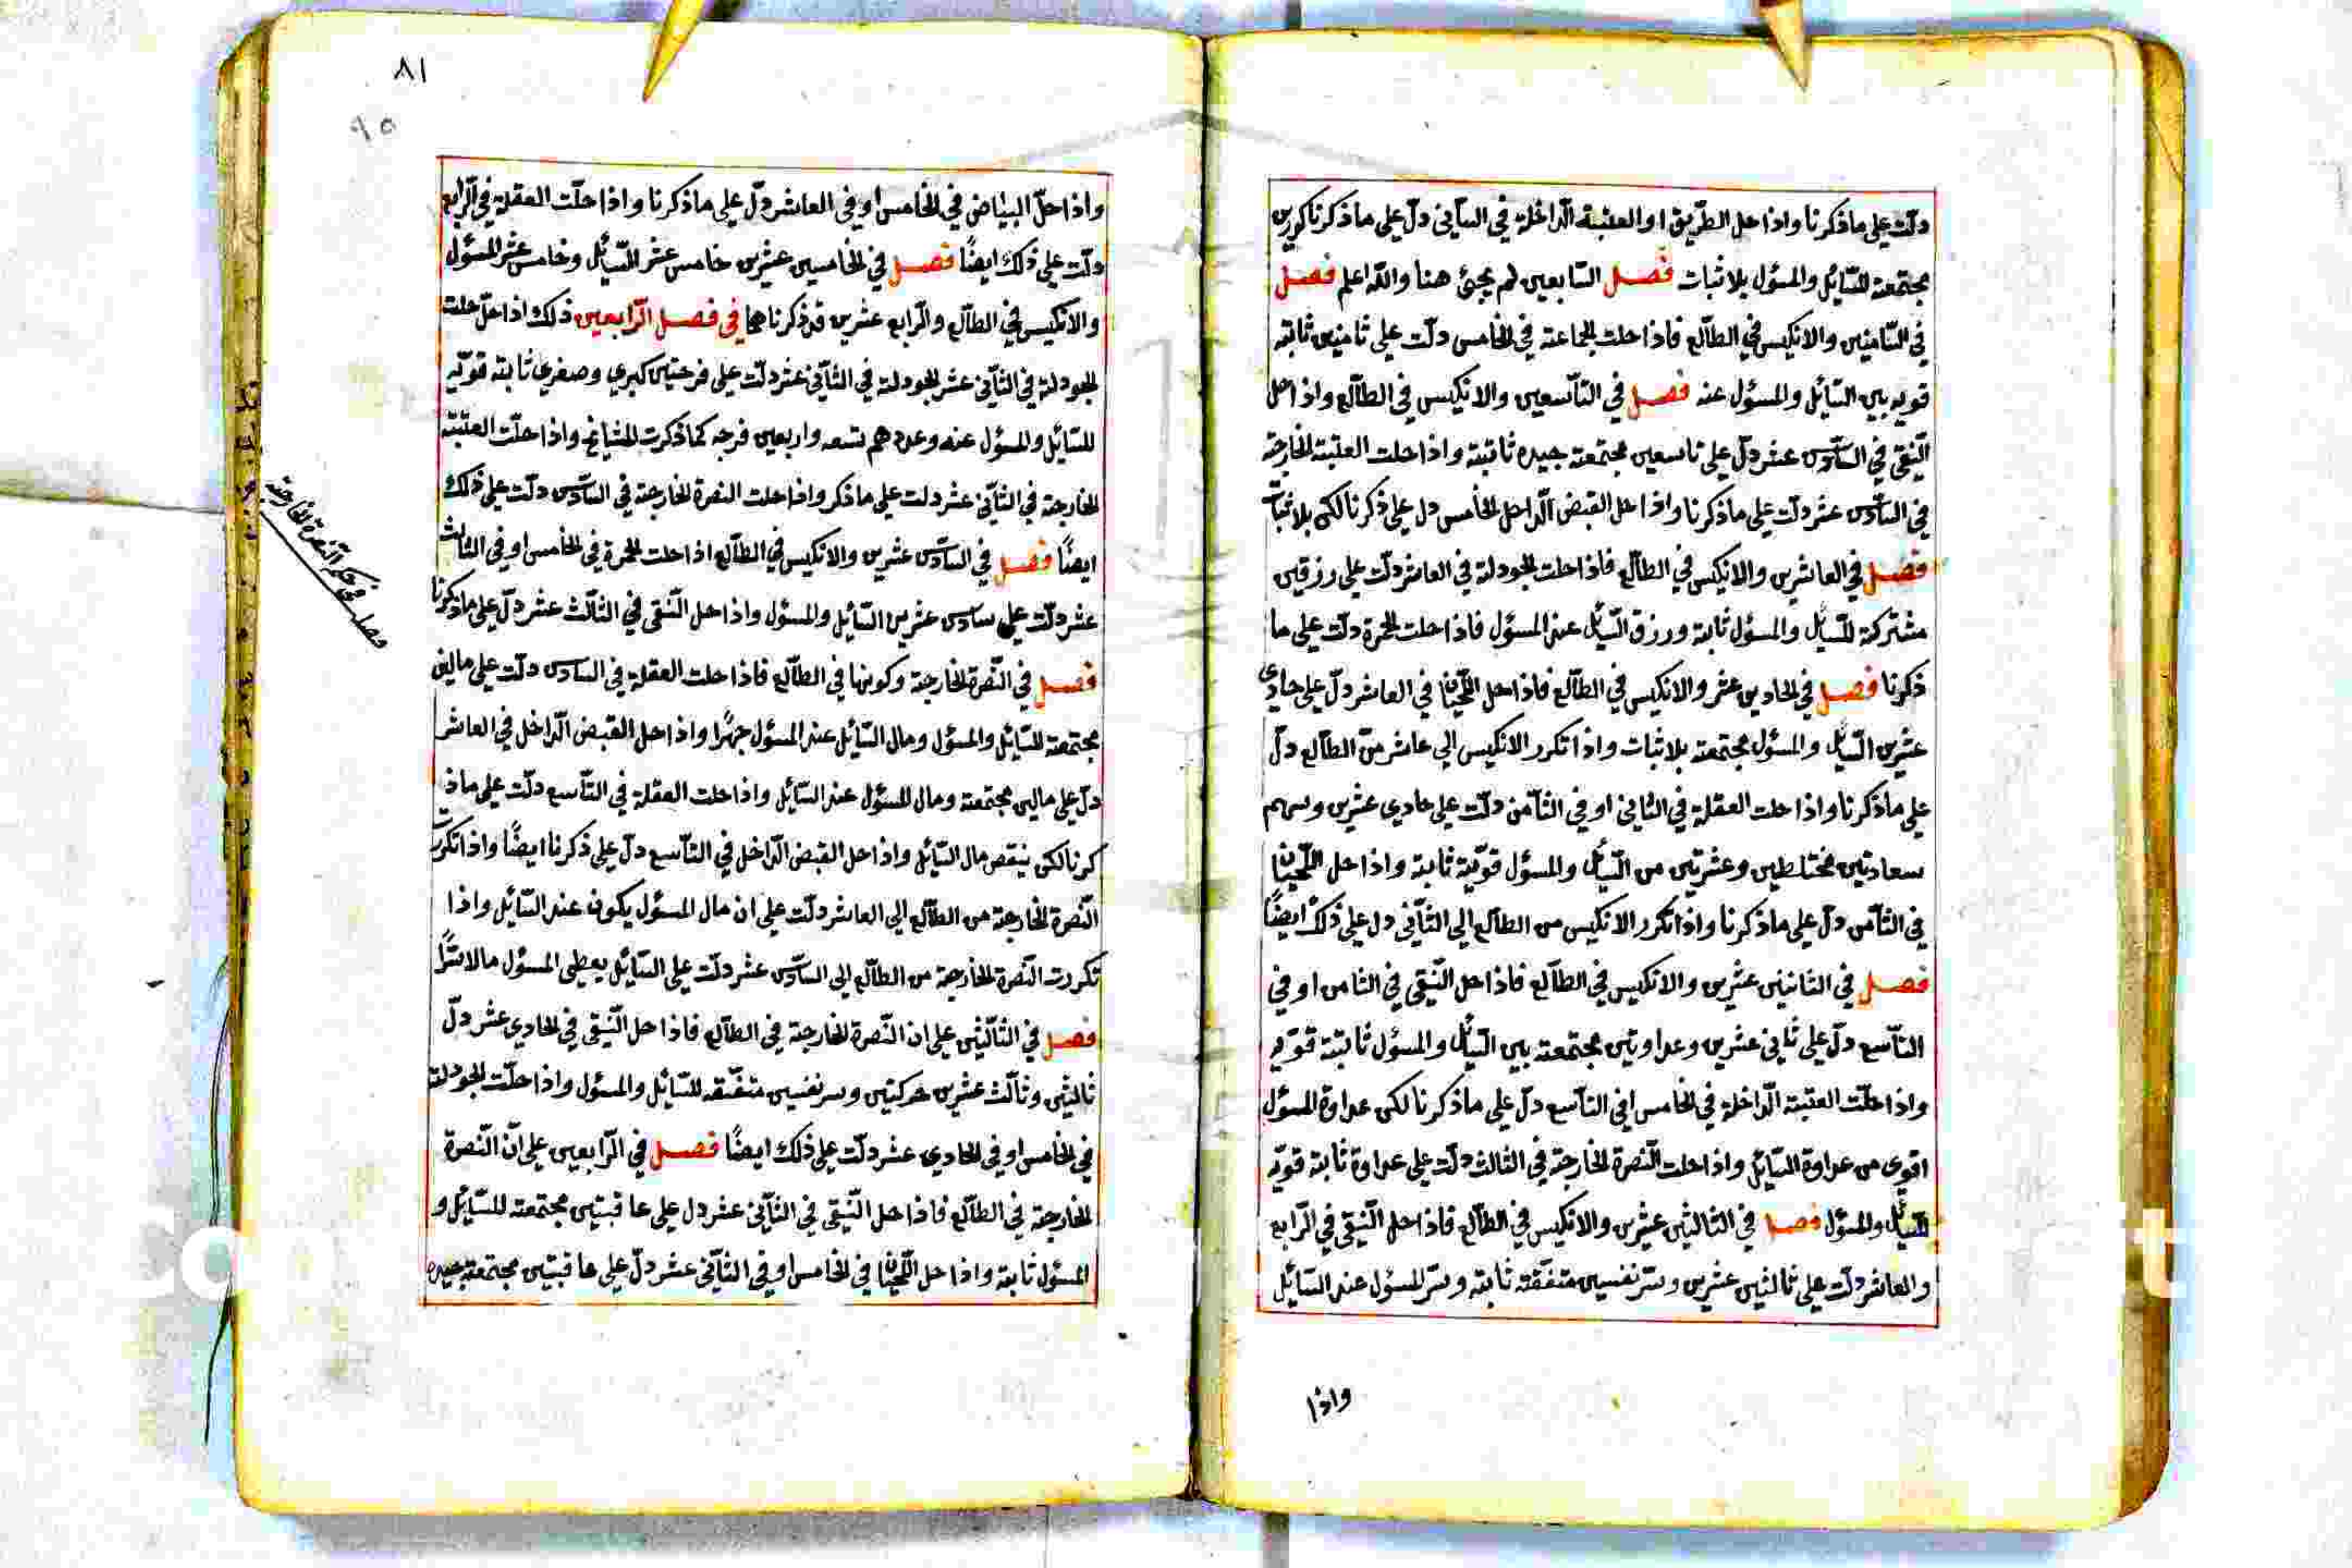 دلت على ماذكرنا واذا حل الطريق او العتبة الداخلة في السابي دل على ماذكرنا كورين
مجتمعة للسائل والمسؤل بلا ثبات فصل السابعين لم يجئ هنا والله اعلم فصل
في الثامنين والانكيس في الطالع فاذا حلت الجماعة في الخامس دلت على ثامنين ثابتة
قويه بين السائل والمسؤل عنه فصل في التاسعين والانكيس في الطالع واذا حل
النقي في السادس عشر دل على تاسعين مجتمعة جيده ثابتة واذا حلت العتبة الخارجة
في السادس عشر دلت على ماذكرنا واذا حل القبض الداخل الخامس دل على ذكرنا لكن بلا ثبات
فصل في العاشرين والانكيس في الطالع فاذا حلت الجودلة في العاشر دلت على رزقين
مشتركة للسائل والمسؤل ثابتة ورزق السائل عند المسؤل فاذا حلت الحمرة دلت على ما
ذكرنا فصل في الحادين عشر والانكيس في الطالع فاذا حل اللحيان في العاشر دل على حادى
عشرين السائل والمسؤل مجتمعة بلا ثبات واذا تكرر الانكيس الى عاشر من الطالع دل
على ماذكرنا واذا حلت العقلة في الثاني او في الثامن دلت على حادي عشرين وسهم
سعادتين مختلطين وعشرتين من السائل والمسؤل قوية ثابتة واذا حل اللحيان
في الثامن دل على ماذكرنا واذا تكرر الانكيس من الطالع الى الثاني دل على ذلك ايضًا
فصل في الثانيين عشرين والانكيس في الطالع فاذا حل النقي في الثامن او في
التاسع دل على ثاني عشرين وعداوتين مجتمعة بين السائل والمسؤل ثابتة قويه
واذا حلت العتبة الداخلة في الخامس افي التاسع دل على ماذكرنا لكن عداوة المسؤل
اقوى من عداوة السائل واذا حلت النصرة الخارجة في الثالث دلت على عداوة ثابتة قويه
للسائل والمسؤل فصل في الثالثين عشرين والانكيس في الطالع فاذا حل النقي في الرابع
والعاشر دلت على ثالثين عشرين وسر نفسين متفقه ثابتة وسر المسؤل عند السائل
واذا
٨١
٩٥
واذا حل البياض في الخامس او في العاشر دل على ماذكرنا واذا حلت العقلة في الرابع
دلت على ذلك ايضًا فصل في الخامسين عشرين خامس عشر السائل وخامس عشر المسؤل
والانكيس في الطالع والرابع عشرين قد ذكرناهما في فصل الرابعين ذلك اذا حل حلت
الجودلة في الثاني عشر الجودلة في الثاني عشر دلت على فرحتين كبري وصغري ثابتة قويه
للسائل والمسؤل عنه وعددهم تسعه واربعين فرجه كما ذكرت المشايخ واذا حلت العتبة
الخارجة في الثاني عشر دلت على ماذكر واذا حلت النصرة الخارجة في السادس دلت على ذلك
ايضًا فصل في السادس عشرين والانكيس في الطالع اذا حلت الحمرة في الخامس او في الثالث
عشر دلت على سادس عشرين السائل والمسؤل واذا حل النقي في الثالث عشر دل على ماذكرنا
فصل في النصرة الخارجة وكونها في الطالع فاذا حلت العقلة في السادس دلت على مالين
مجتمعة للسائل والمسؤل ومال السائل عند المسؤل جهرًا واذا حل القبض الداخل في العاشر
دل على مالين مجتمعة ومال المسؤل عند السائل واذا حلت العقلة في التاسع دلت على ماذ
كرنا لكن ينقص مال السائل واذا حل القبض الداخل في التاسع دل على ذكرنا ايضًا واذا تكررت
النصرة الخارجة من الطالع الى العاشر دلت على ان مال المسؤل يكون عند السائل واذا
تكررت النصرة الخارجة من الطالع الى السادس عشر دلت على السائل يعطي المسؤل مالا
فصل في الثالثين على ان النصرة الخارجة في الطالع فاذا حل النقي في الحادي عشر دل
ثالثين وثالث عشرين حركتين وسر نفسين متفقه للسائل والمسؤل واذا حلت الجودلة
في الخامس او في الحادي عشر دلت على ذلك ايضًا فصل في الرابعين على ان النصرة
الخارجة في الطالع فاذا حل النقي في الثاني عشر دل على عاقبتين مجتمعة للسائل و
المسؤل ثابتة واذا حل اللحيان في الخامس او في الثاني عشر دل على عاقبتين مجتمعة جيده
فصل في حكم النصرة الخارجة